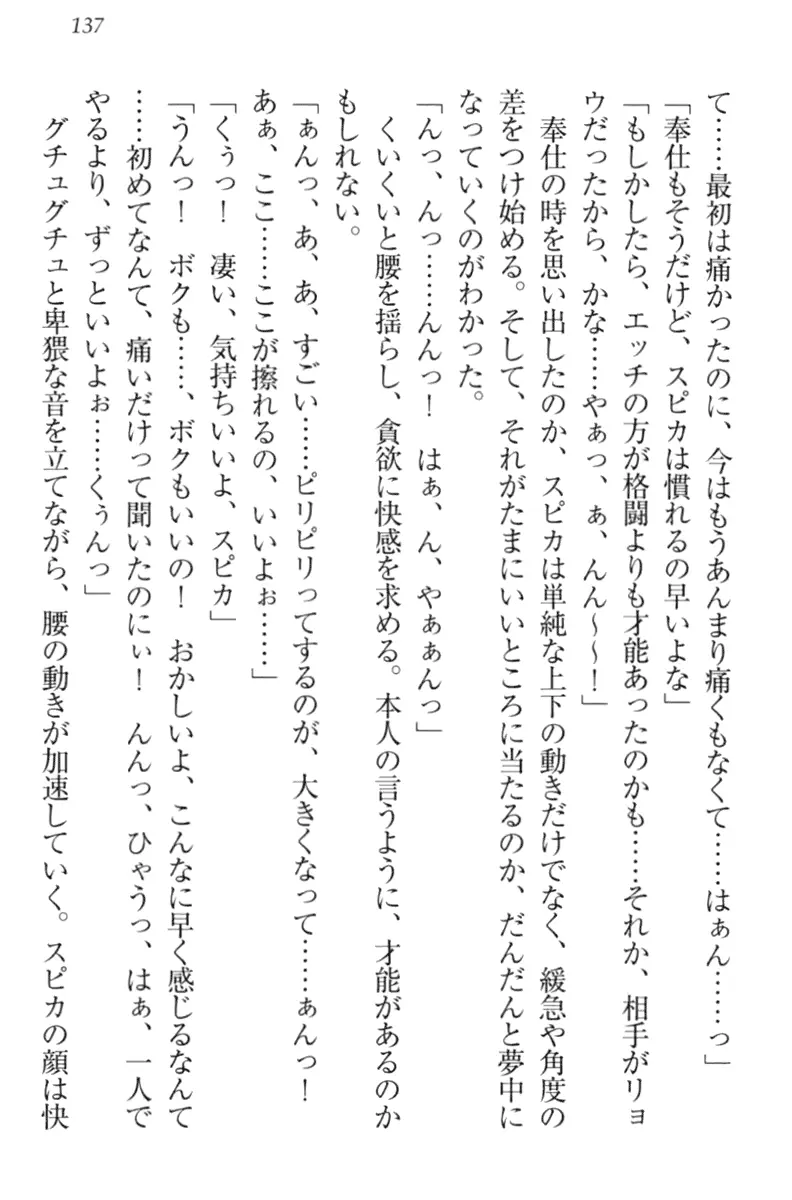 137
て……最初は痛かったのに、今はもうあんまり痛くもなくて……はぁん……っ」
「奉仕もそうだけど、スピカは慣れるの早いよな」
「もしかしたら、エッチの方が格闘よりも才能あったのかも……それか、相手がリョ
ウだったから、かな……やぁっ、ぁ、んん～～！」
奉仕の時を思い出したのか、スピカは単純な上下の動きだけでなく、緩急や角度の
差をつけ始める。そして、それがたまにいいところに当たるのか、だんだんと夢中に
なっていくのがわかった。
「んっ、んっ……んんっ！　はぁ、ん、やぁぁんっ」
くいくいと腰を揺らし、貪欲に快感を求める。本人の言うように、才能があるのか
もしれない。
「ぁんっ、あ、あ、すごい……ピリピリってするのが、大きくなって……ぁんっ！
あぁ、ここ……ここが擦れるの、いいよぉ……」
「くぅっ！　凄い、気持ちいいよ、スピカ」
「うんっ！　ボクも……、ボクもいいの！　おかしいよ、こんなに早く感じるなんて
……初めてなんて、痛いだけって聞いたのにぃ！　んんっ、ひゃうっ、はぁ、一人で
やるより、ずっといいよぉ……くぅんっ」
グチュグチュと卑猥な音を立てながら、腰の動きが加速していく。スピカの顔は快